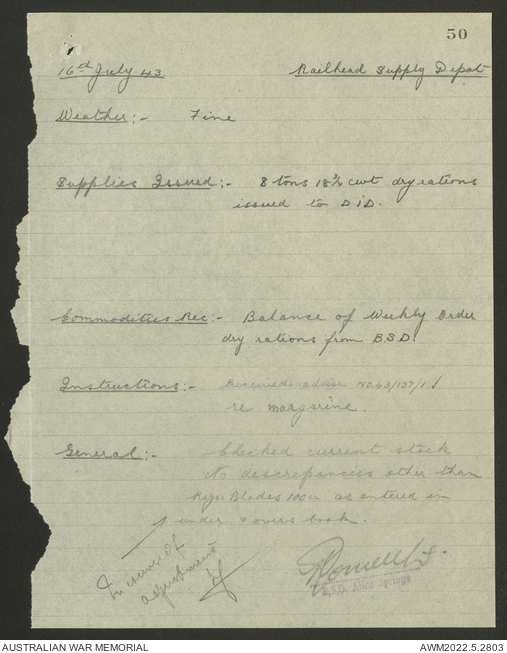 50
16th July 43. Railhead Supply Depot
Weather:- Fine
Supplies Issued:- 8 tons 18¾ cwt dry rations
issued to D.I.D.
Commodities Rec:- Balance of Weekly Order
dry rations from B.S.D.
Instructions:- Received advise NO.43/137/1
re margarine.
General:- Checked current stock
No discrepancies other than
Razor Blades as entered in
under & overs book.
In course of
adjustment
B.S.O. Alice Springs
AUSTRALIAN WAR MEMORIAL AWM2022.5.2803